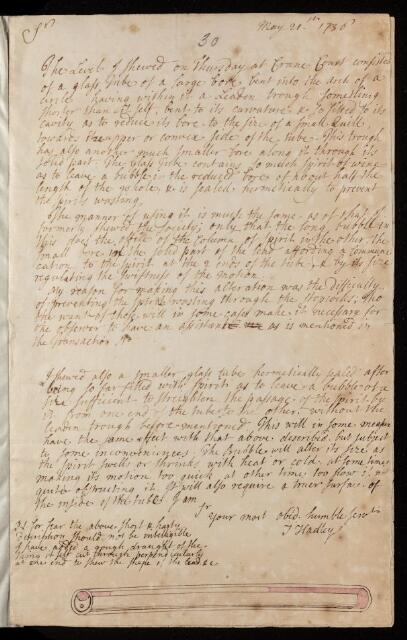 Sr
May 21st 1736
30
The Level I shewed on Thursday at Crane Court consisted
of a glass tube of a large bore, bent into the arch of a
circle having within it a Leaden trough something
shorter than it self, bent to its curvature & so fitted to its
cavity as to reduce its bore to the size of a small Quill
towards the upper or convex side of the tube. This trough
has also another much smaller bore along it through its
solid part. The Glass tube contains so much spirit of wine
as to leave a bubble in the reduced bore of about half the
length of the whole, & is sealed hermetically to prevent
the spirits wasting.
The manner of using it is much the same as of that I
formerly shewed the Society; only that the long bubble in
this does the office of the column of spirit in the other the
small bore in the solid part of the lead affording a communi
cation to the spirit at the 2 ends of the tube, & by its size
regulating the swiftness of the motion.
My reason for making this alteration was the difficulty
of preventing the spirits wasting through the stopcocks, tho
the want of these will in some cases make it necessary for
the observer to have an assistant as is mentioned in
the transaction No
I shewed also a smaller glass tube hermetically sealed after
being so far filled with spirit as to leave a bubble of a
size sufficient to straighten the passage of the spirit by
it from one end of the tube to the other, without the
leaden trough before mentioned. This will in some measure
have the same effect with that above described but subject
to some inconveniences. The bubble will alter its size as
the spirit swells or shrinks with heat or cold, at some times
making its motion too quick at other times too slow or
quite obstructing it. It will also require a truer surface of
the inside of the tube. I am
Sr
Your most obed. humble servt
J Hadley
As for fear the above short & hasty
description should not be intelligible
I have added a rough draught of the
thing it self cut through perpendicularly
at one end to shew the shape of the lead &c